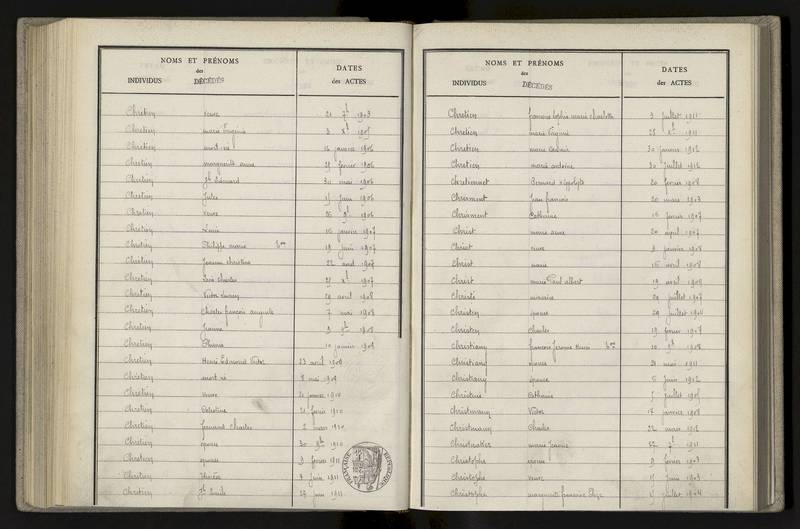 NOMS ET PRÉNOMS
des
DÉCÉDÉS
INDIVIDUS
DATES
des ACTES
Chretien veuve 21 7b 1903
Chretien marie Eugenie 3 Xb 1905
Chretien mort né 16 janvier 1906
Chretien marguerite anne février 1906
Chretien Edmond 30 mai 1906
Chretien Jules 15 juin 1906
Chretien veuve 26 9b 1906
Chretien 16 janvier 1907
Chretien Philippe marie 19 juin 1907
Chretien Jeanne christine 22 avril 1907
Chretien charles Xb 1907
Chretien Victor 29 avril 1908
Chretien Charles françois auguste 7 mai 1908
Chretien Jeanne 9 9b 1908
Chretien 10 janvier 1909
Chretien Henri Edmond Victor 23 avril 1909
Chretien mort né 8 mai 1909
Chretien veuve 1910
Chretien Celestine 21 février 1910
Chretien fernand Charles 2 mars 1910
Chretien epouse 30 9b 1910
Chretien epouse 9 février 1911
Chretien 4 juin 1911
Chretien Emile 27 juin 1911
NOMS ET PRÉNOMS
des
DÉCÉDÉS
INDIVIDUS
DATES
des ACTES
Chretien françoise Sophie marie charlotte 3 juillet 1911
Chretien marie Virginie 28 Xb 1911
Chretien marie 30 janvier 1912
Chretien marie antoine 20 juillet 1912
Chretiennet Bernard Hippolyte 20 février 1908
Chriement Jean françois 20 mars 1903
Chriement Catherine 16 février 1907
Christ marie anne 20 avril 1907
Christ veuve 9 janvier 1908
Christ marie 16 avril 1908
Christ marie Paul albert 19 avril 1909
Christé 29 juillet 1907
Christen epouse 29 juillet 1904
Christen Charles 19 février 1907
Christiany françois Jerome Henri 10 9b 1908
Christiany epouse 21 mai 1911
Christiany epouse 5 juin 1912
Christine Catherine 5 juillet 1905
Christmann Victor 17 janvier 1908
Christmann Charles 22 mars 1912
Christnacker marie Jeanne 1911
Christophe 9 février 1903
Christophe veuve 15 juin 1903
Christophe marguerite françoise juillet 1904